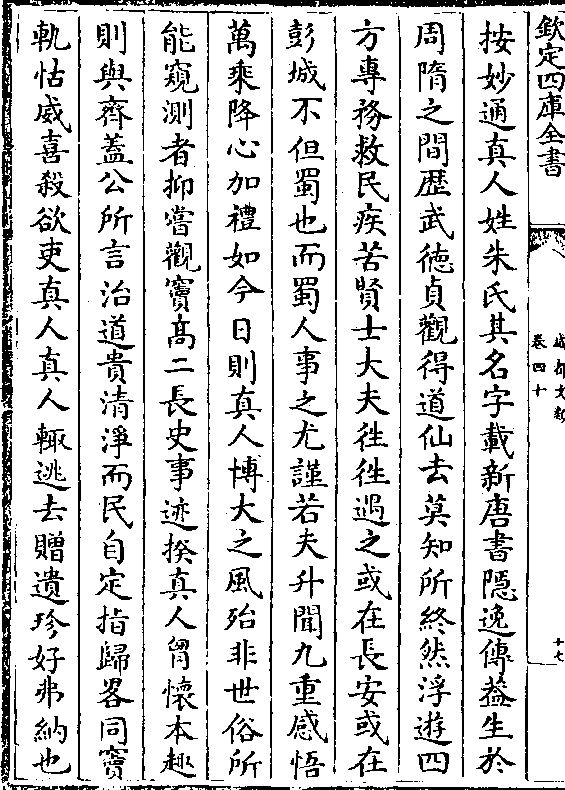 欽定四庫全書
成都文類
卷四十
十七
按妙通真人姓朱氏其名字載新唐書隱逸傳葢生於
周隋之間歴武徳貞觀得道仙去莫知所終然浮遊四
方專務救民疾苦賢士大夫徃徃遇之或在長安或在
彭城不但蜀也而蜀人事之尤謹若夫升聞九重感悟
萬乘降心加禮如今日則真人博大之風殆非世俗所
能窺測者抑嘗觀竇髙二長史事迹揆真人胷懷本趣
則與齊蓋公所言治道貴清淨而民自定指歸畧同竇
軌怙威喜殺欲吏真人真人輒逃去贈遺珍好弗納也